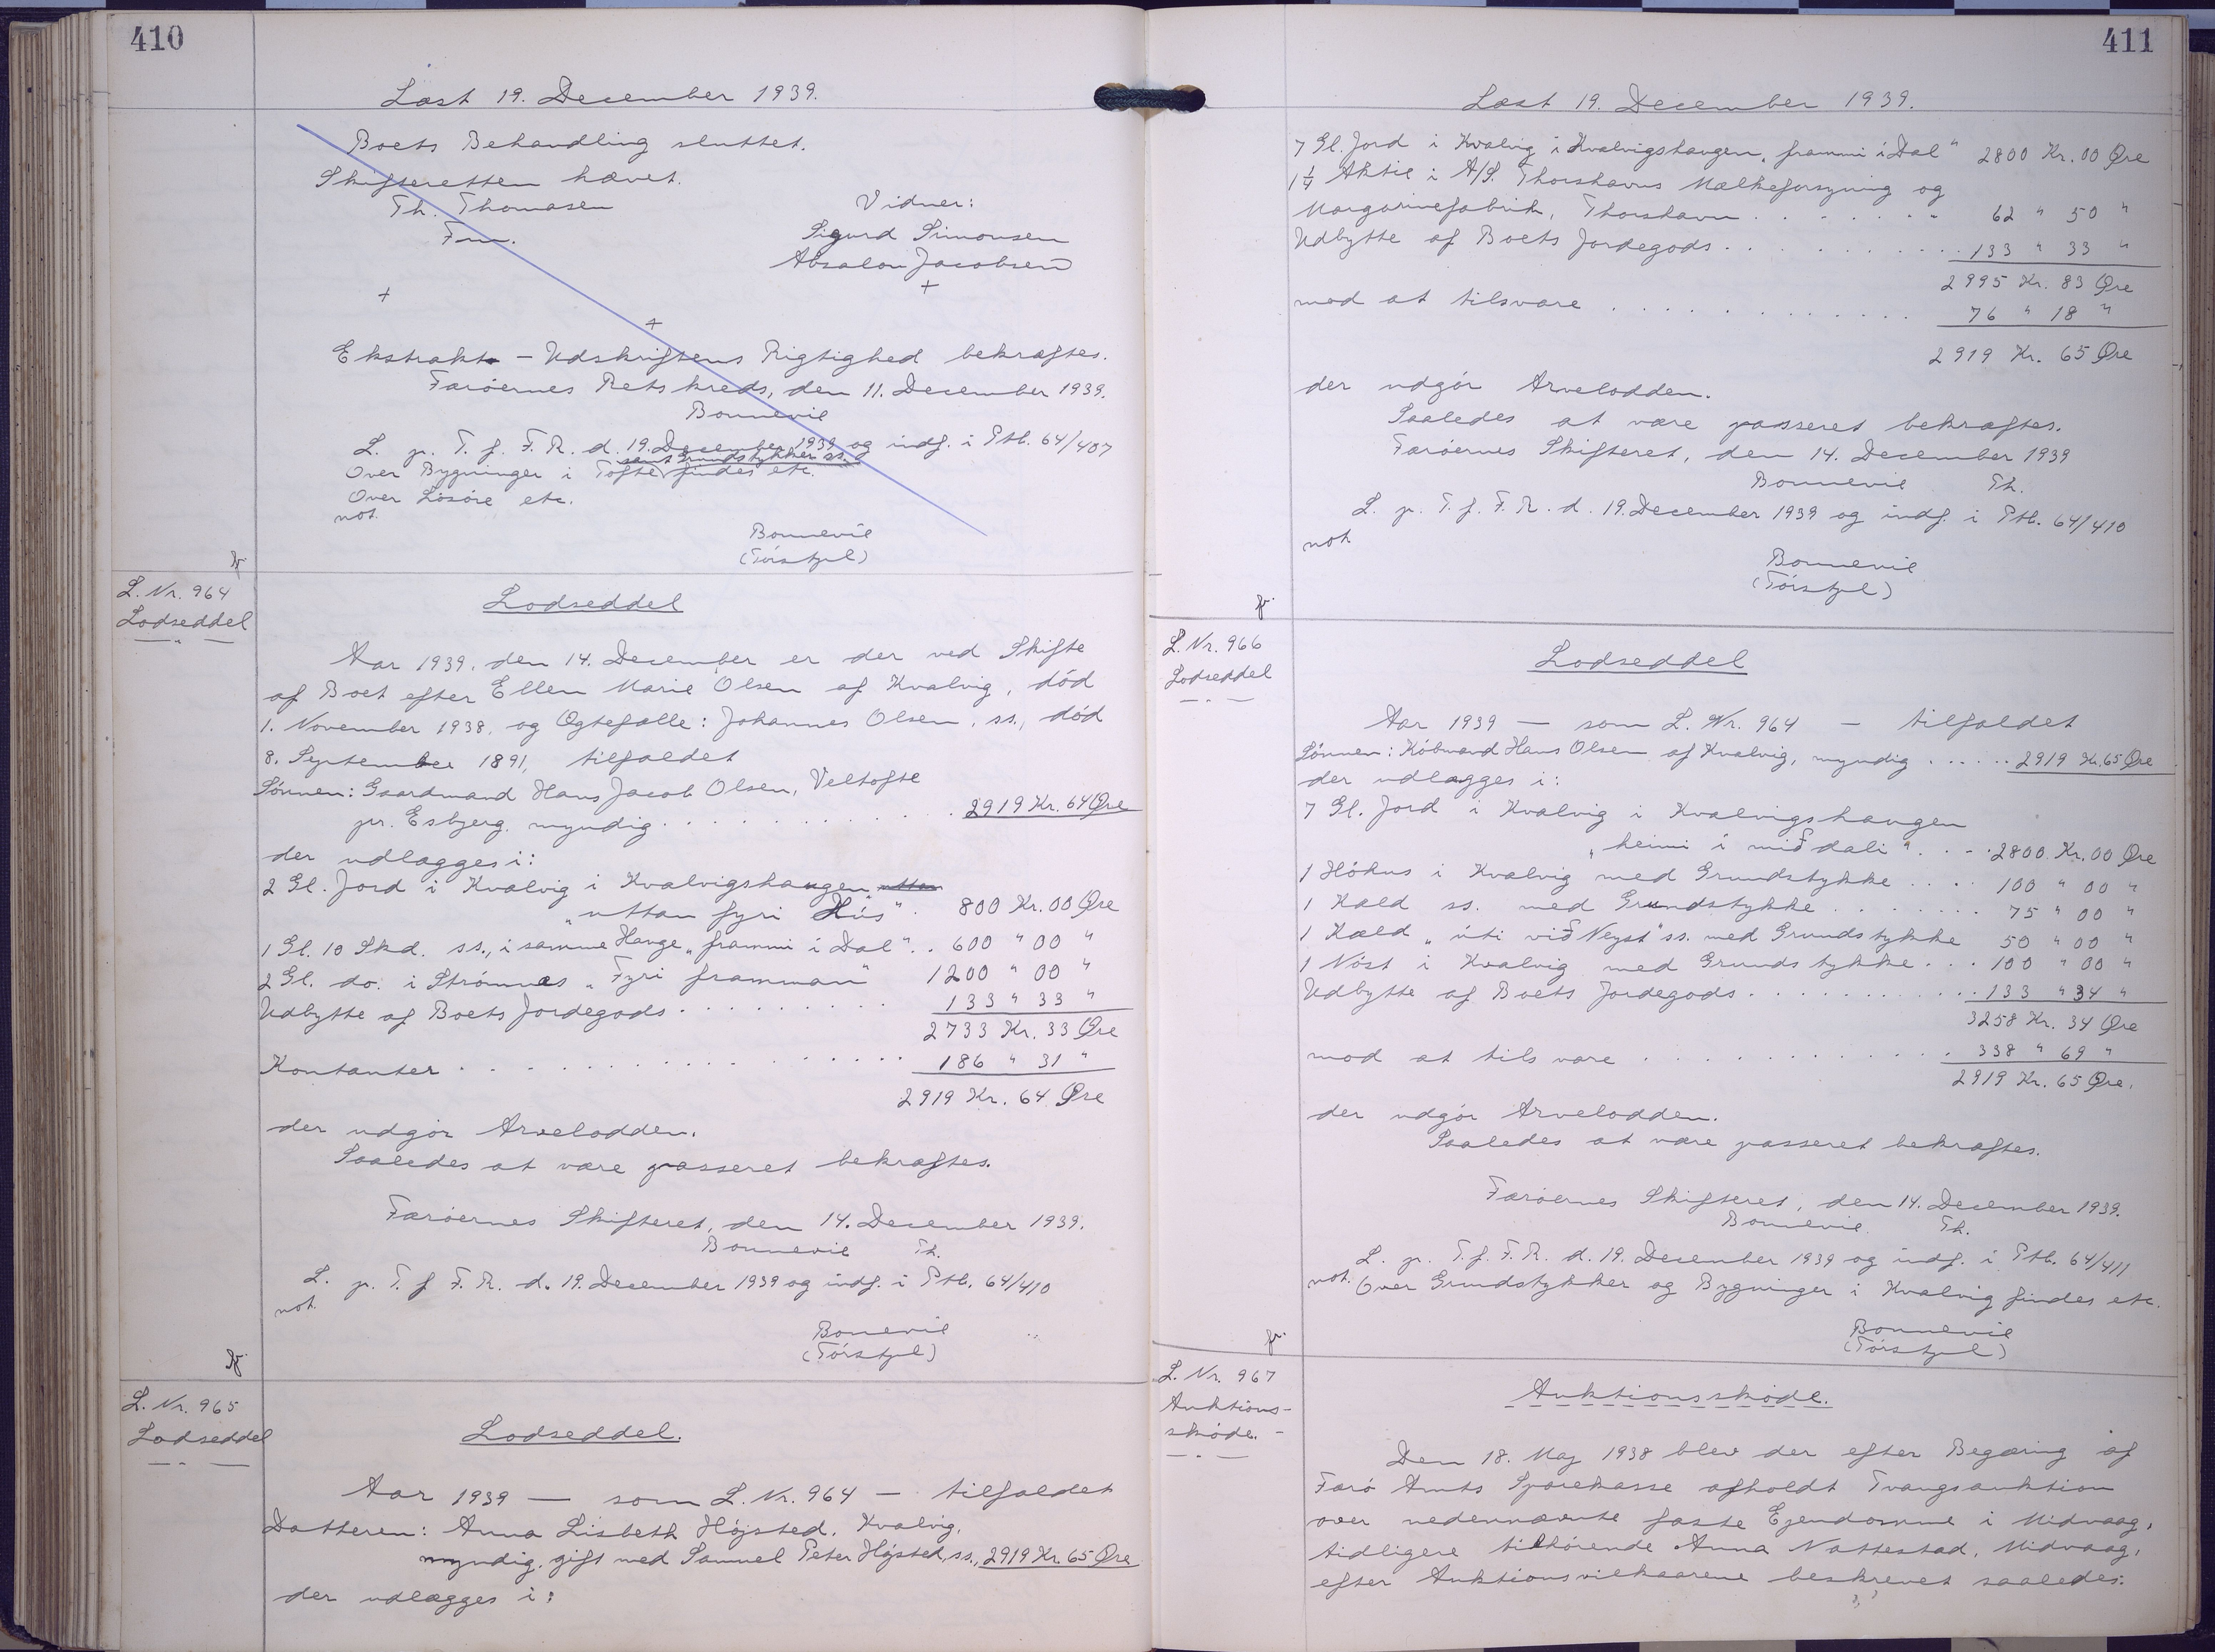 410
Læst 19. December 1939.
Boets Behandling sluttet.
Skifteretten hævet.
Th. Thomasen
Fm.
Vidner:
Sigurd Simonsen
Absalon Jacobsen
+ +
+
Ekstrakt - Udskriftens Rigtighed bekræftes.
Færøernes Retskreds, den 11. December 1939.
Bonnevie
L. p. T. f. F. R. d. 19. December 1939 og indf. i Ptb. 64/407
samt Grundstykker ss.
Over Bygninger i Tofte findes etc.
Over Løsøre etc.
not.
Bonnevie
(Tórstjul)
fr.
L. Nr. 964
Lodseddel
Lodseddel
Aar 1939, den 14. December er der ved Skifte
af Boet efter Ellen Marie Olsen af Kvalvig, død
1. November 1938, og Ægtefælle: Johannes Olsen, ss., død
8. September 1891, tilfaldet
Sønnen: Gaardmand Hans Jacob Olsen, Veltofte
pr. Esbjerg. myndig . . . . . . . . . . . 2919 Kr. 64 Øre
der udlægges i:
2 Gl. Jord i Kvalvig i Kvalvigshaugen
"uttan fyri Hús" . 800 Kr. 00 Øre
1 Gl. 10 Skd. ss., i samme Hauge "frammi í Dal" . . 600 " 00 "
2 Gl. do. i Strømnes "Fyri framman" 1200 " 00 "
Udbytte af Boets Jordegods . . . . . . . . 133 " 33 "
2733 Kr. 33 Øre
Kontanter . . . . . . . . . . . . . . . 186 " 31 "
2919 Kr. 64 Øre
der udgør Arvelodden.
Saaledes at være passeret bekræftes.
Færøernes Skifteret, den 14. December 1939.
Bonnevie Th.
L. p. T. f. F. R. d. 19. December 1939 og indf. i Ptb. 64/410
not.
Bonnevie
(Tórstjul)
fr.
L. Nr. 965
Lodseddel
Lodseddel.
Aar 1939 — som L. Nr. 964 — tilfaldet
Datteren: Anna Lisbeth Højsted, Kvalvig,
myndig, gift med Samuel Peter Højsted, ss., 2919 Kr. 65 Øre
der udlægges i:
411
Læst 19. December 1939.
7 Gl. Jord i Kvalvig i Kvalvigshaugen, frammi í Dal" 2800 Kr. 00 Øre
1 1/4 Aktie i A/S. Thorshavns Mælkeforsyning og
Margarinefabrik, Thorshavn . . . . . . . 62 " 50 "
Udbytte af Boets Jordegods . . . . . . . . . . 133 " 33 "
2995 Kr. 83 Øre
mod at tilsvare . . . . . . . . . . . . . 76 " 18 "
2919 Kr. 65 Øre
der udgør Arvelodden.
Saaledes at være passeret bekræftes.
Færøernes Skifteret, den 14. December 1939
Bonnevie Th.
L. p. T. f. F. R. d. 19. December 1939 og indf. i Ptb. 64/410
not
Bonnevie
(Tórstjul)
fr.
L. Nr. 966
Lodseddel
Lodseddel
Aar 1939 — som L. Nr. 964 — tilfaldet
Sønnen: Købmand Hans Olsen af Kvalvig, myndig . . . . . 2919 Kr. 65 Øre
der udlægges i:
7 Gl. Jord i Kvalvig i Kvalvigshaugen
"heimi í miðdali" . . . 2800 Kr. 00 Øre
1 Høhus i Kvalvig med Grundstykke . . . . 100 " 00 "
1 Kæld ss. med Grundstykke . . . . . . . 75 " 00 "
1 Kæld "úti við Neyst" ss. med Grundstykke 50 " 00 "
1 Nøst i Kvalvig med Grundstykke . . . 100 " 00 "
Udbytte af Boets Jordegods . . . . . . . . . . . 133 " 34 "
3258 Kr. 34 Øre
mod at tilsvare . . . . . . . . . . . . . 338 " 69 "
2919 Kr. 65 Øre.
der udgør Arvelodden.
Saaledes at være passeret bekræftes.
Færøernes Skifteret, den 14. December 1939.
Bonnevie. Th.
L. p. T. f. F. R. d. 19. December 1939 og indf. i Ptb. 64/411
not. Over Grundstykker og Bygninger i Kvalvig findes etc.
Bonnevie
(Tórstjul)
fr.
L. Nr. 967
Auktions-
skøde.
Auktionsskøde.
Den 18. Maj 1938 blev der efter Begæring af
Færø Amts Sparekasse afholdt Tvangsauktion
over nedennævnte faste Ejendomme i Midvaag,
tidligere tilhørende Anna Nattestad, Midvaag,
efter Auktionsvilkaarene beskrevet saaledes: